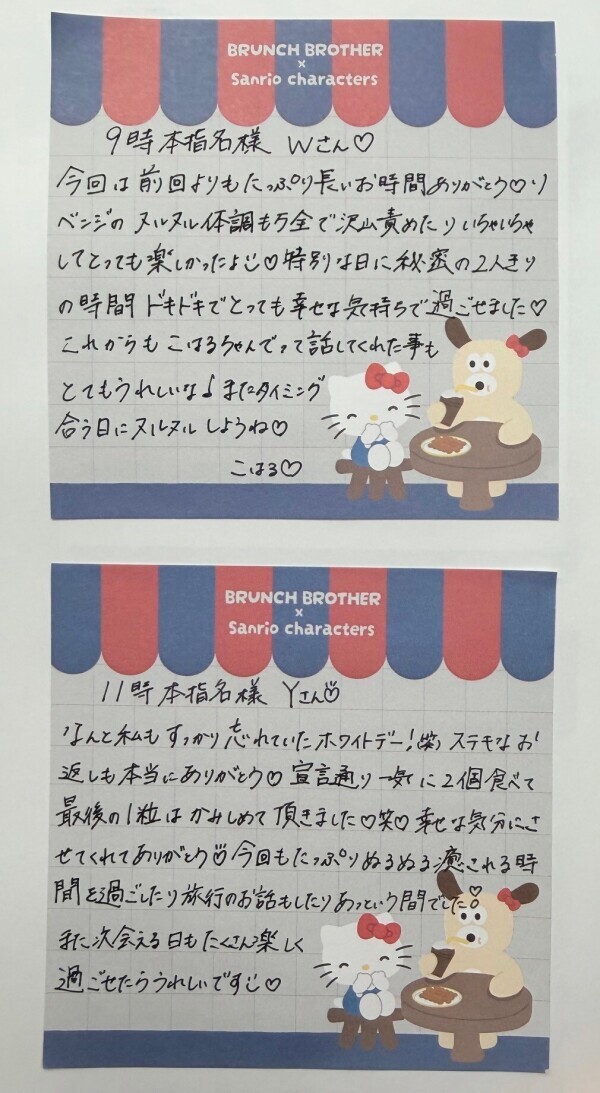 BRUNCH BROTHER
×
Sanrio characters
9時本指名様 Wさん♡
今回は前回よりもたっぷり長いお時間ありがとう♡リ
ベンジのヌルヌル体調も万全で沢山責めたりいちゃいちゃ
してとっても楽しかったよ♡特別な日に秘密の2人きり
の時間ドキドキでとっても幸せな気持ちで過ごせました♡
これからもこはるちゃんでって話してくれた事も
とてもうれしいな♪またタイミング
合う日にヌルヌルしようね♡
こはる♡
BRUNCH BROTHER
×
Sanrio characters
11時本指名様 Yさん♡
なんと私もすっかり忘れていたホワイトデー!(笑)ステキなお
返しも本当にありがとう♡宣言通り一気に2個食べて
最後の1粒はかみしめて頂きました♡笑♡幸せな気分にさ
せてくれてありがとう♡今回もたっぷりぬるぬる癒される時
間を過ごしたり旅行のお話もしたりあっという間でした!
また次会える日もたくさん楽しく
過ごせたらうれしいです♡